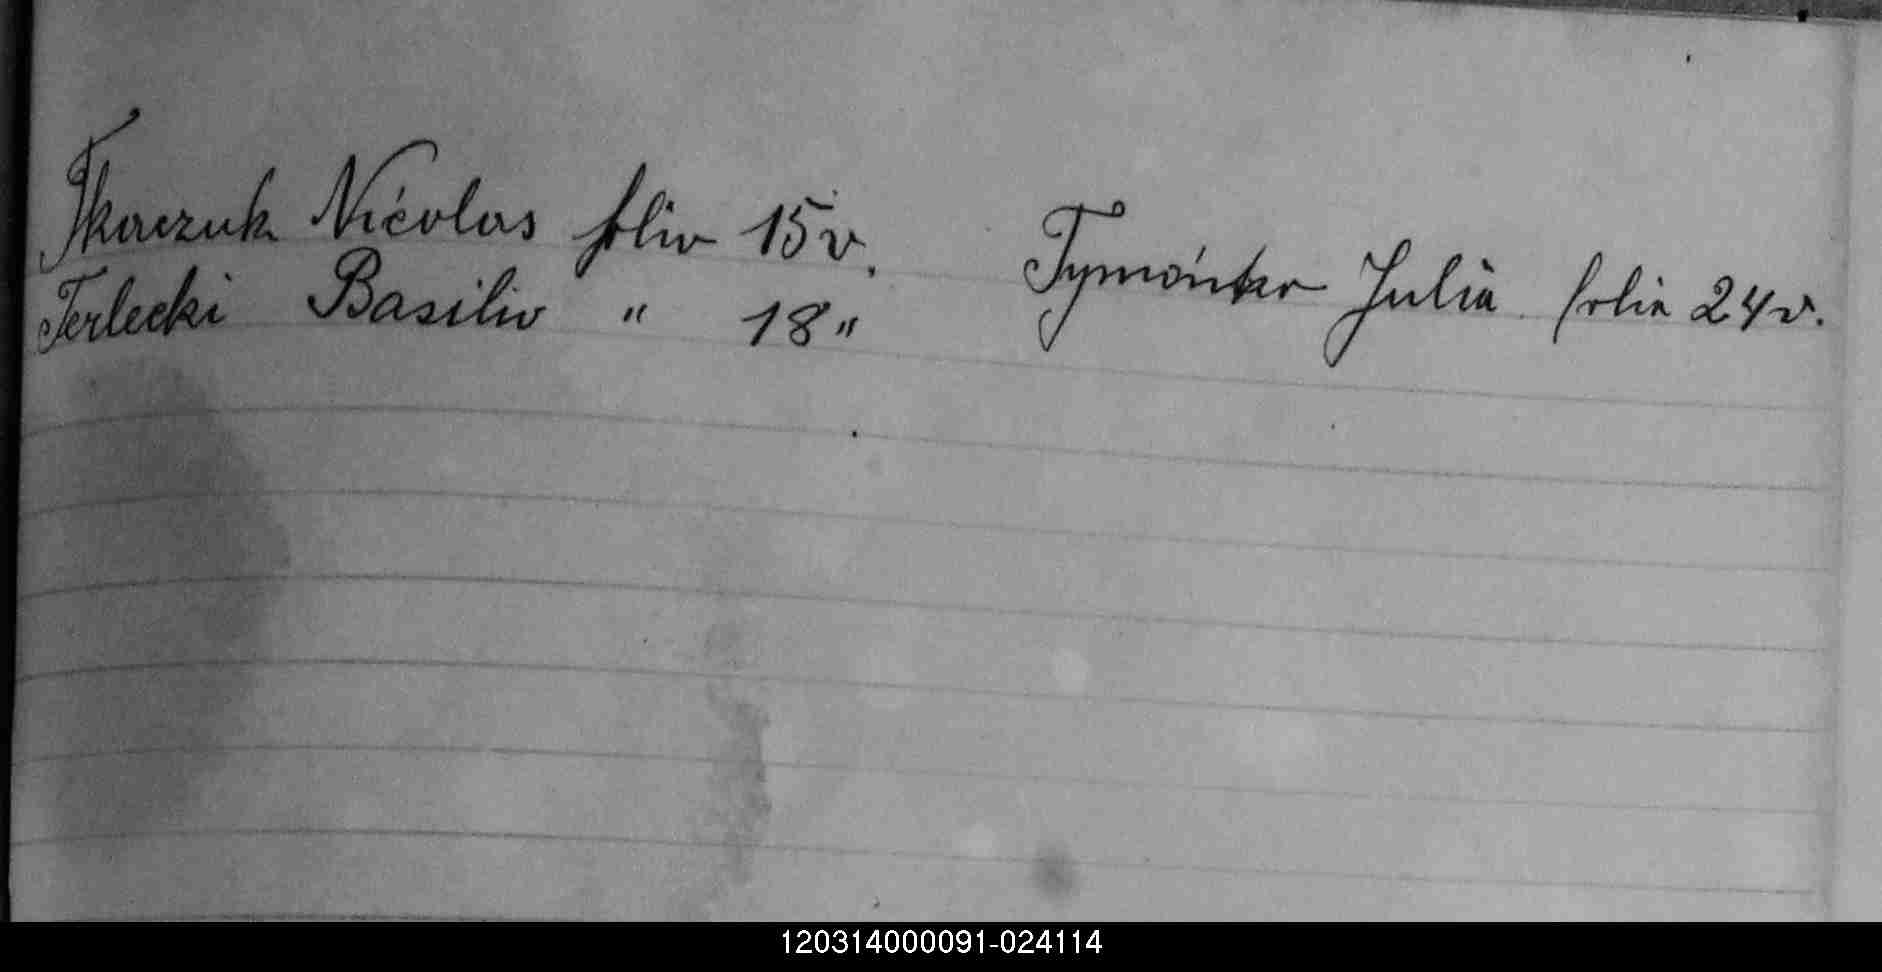 Tkaczuk Nicolas folio 15 v.
Terlecki Basilio " 18 "
Julia folio 24 v.
120314000091-024114